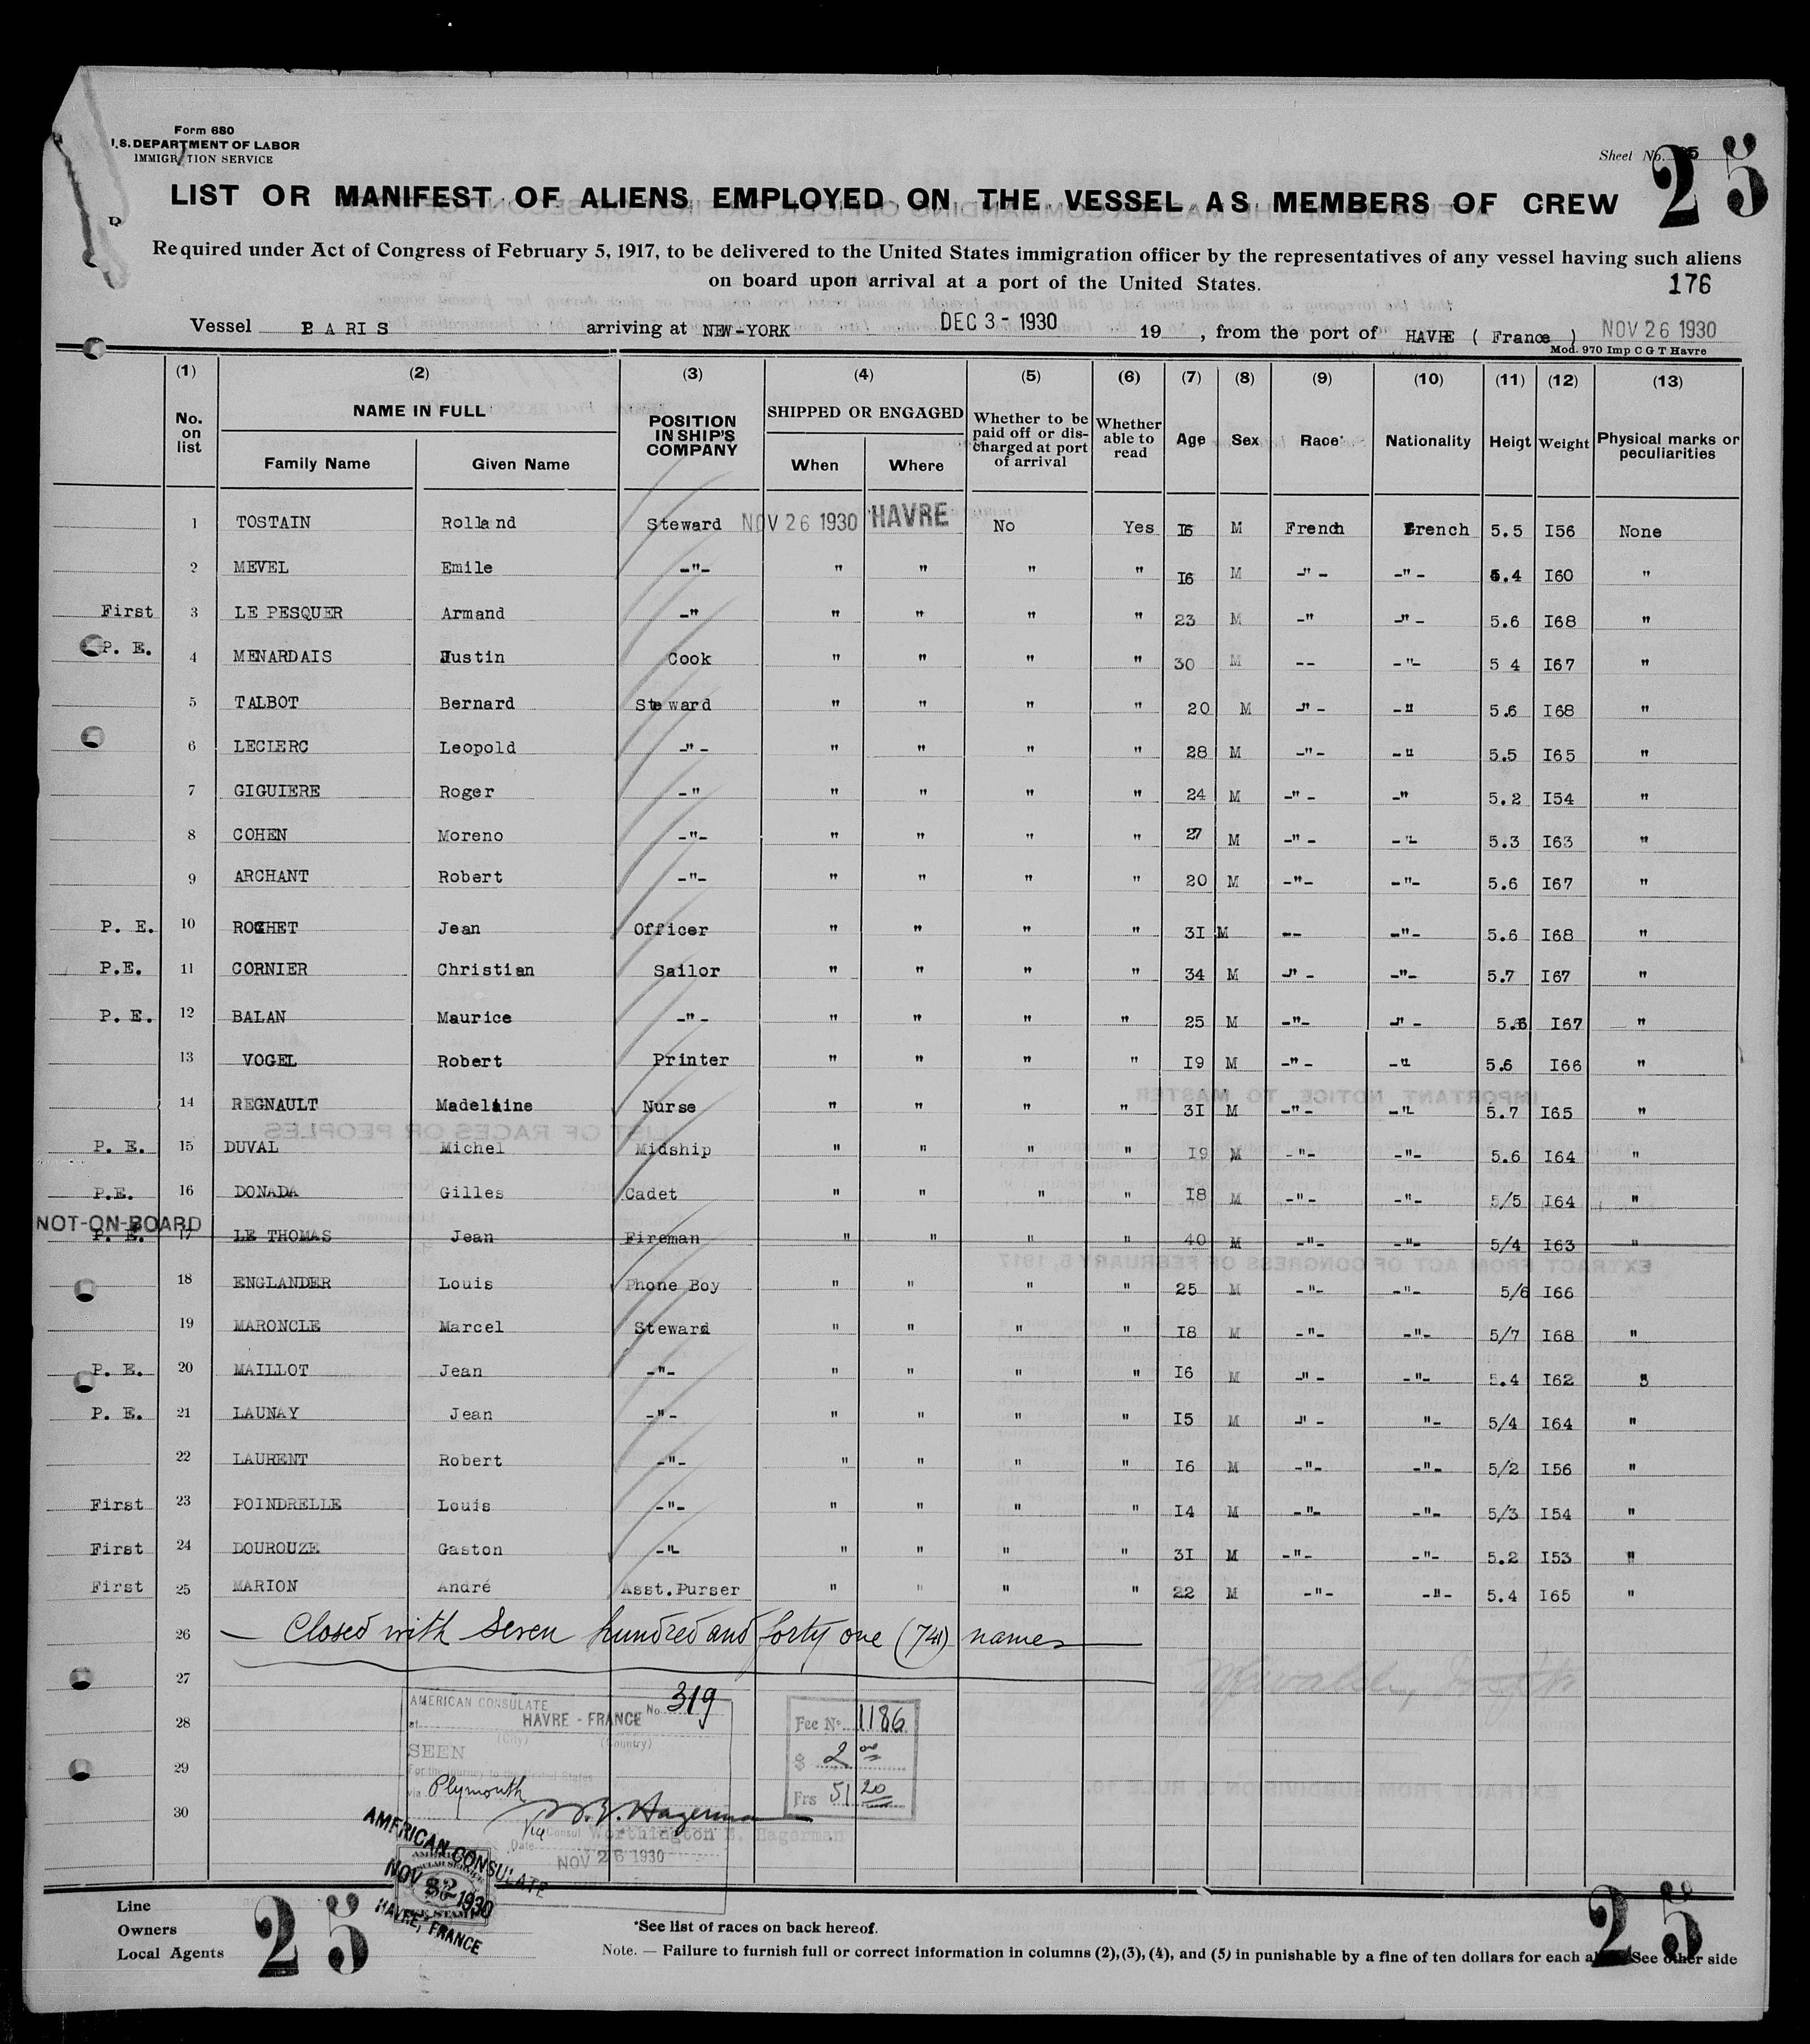 Form 680
U.S. DEPARTMENT OF LABOR
IMMIGRATION SERVICE
Sheet No. 25
25
LIST OR MANIFEST OF ALIENS EMPLOYED ON THE VESSEL AS MEMBERS OF CREW
Required under Act of Congress of February 5, 1917, to be delivered to the United States immigration officer by the representatives of any vessel having such aliens
on board upon arrival at a port of the United States.
176
Vessel PARIS arriving at NEW-YORK DEC 3 - 1930 19 , from the port of HAVRE ( France ) NOV 26 1930
Mod. 970 Imp C G T Havre
(1) (2) (3) (4) (5) (6) (7) (8) (9) (10) (11) (12) (13)
No. on list NAME IN FULL Family Name Given Name POSITION IN SHIP'S COMPANY SHIPPED OR ENGAGED When Where Whether to be paid off or discharged at port of arrival Whether able to read Age Sex Race* Nationality Heigt Weight Physical marks or peculiarities
1 TOSTAIN Rolland Steward NOV 26 1930 HAVRE No Yes I6 M French French 5.5 I56 None
2 MEVEL Emile -"- " " " " I6 M -"- -"- 5.4 I60 "
First 3 LE PESQUER Armand -" " " " " 23 M -" -"- 5.6 I68 "
P. E. 4 MENARDAIS Justin Cook " " " " 30 M -- -"- 5 4 I67 "
5 TALBOT Bernard Steward " " " " 20 M -"- -" 5.6 I68 "
6 LECLERC Leopold -"- " " " " 28 M -"- -" 5.5 I65 "
7 GIGUIERE Roger -" " " " " 24 M -"- -" 5.2 I54 "
8 COHEN Moreno -"- " " " " 27 M -"- -"- 5.3 I63 "
9 ARCHANT Robert -"- " " " " 20 M -"- -"- 5.6 I67 "
P. E. 10 ROCHET Jean Officer " " " " 3I M -- -"- 5.6 I68 "
P.E. 11 CORNIER Christian Sailor " " " " 34 M -"- -"- 5.7 I67 "
P. E. 12 BALAN Maurice -"- " " " " 25 M -"- -"- 5.6 I67 "
13 VOGEL Robert Printer " " " " I9 M -"- -"- 5.6 I66 "
14 REGNAULT Madelaine Nurse " " " " 3I M -"- -"- 5.7 I65 "
P. E. 15 DUVAL Michel Midship " " " " I9 M -"- -"- 5.6 I64 "
P.E. 16 DONADA Gilles Cadet " " " " I8 M -"- -"- 5/5 I64 "
NOT-ON-BOARD
P. E. 17 LE THOMAS Jean Fireman " " " " 40 M -"- -"- 5/4 I63 "
18 ENGLANDER Louis Phone Boy " " " " 25 M -"- -"- 5/6 I66
19 MARONCLE Marcel Steward " " " " I8 M -"- -"- 5/7 I68 "
P. E. 20 MAILLOT Jean -"- " " " " I6 M -"- -"- 5.4 I62
P. E. 21 LAUNAY Jean -"- " " " " I5 M -"- "- 5/4 I64 "
22 LAURENT Robert -"- " " " " I6 M -"- -"- 5/2 I56 "
First 23 POINDRELLE Louis -"- " " " " I4 M -"- -"- 5/3 I54 "
First 24 DOUROUZE Gaston -"- " " " " 3I M -"- -"- 5.2 I53 "
First 25 MARION André Asst.Purser " " " " 22 M -"- -"- 5.4 I65 "
26 Closed with Seven hundred and forty one (741) names
27
28
29
30
AMERICAN CONSULATE No. 319
at HAVRE - FRANCE
(City) (Country)
SEEN
For the journey to the United States
via Plymouth
W. E. Hagerman
Vice Consul Worthington E. Hagerman
Date NOV 26 1930
Fee No. 1186
$ 2 00
Frs 51 20
AMERICAN CONSULATE
NOV 1930
HAVRE, FRANCE
Line
Owners
Local Agents
25
*See list of races on back hereof.
Note. — Failure to furnish full or correct information in columns (2), (3), (4), and (5) in punishable by a fine of ten dollars for each See other side
25